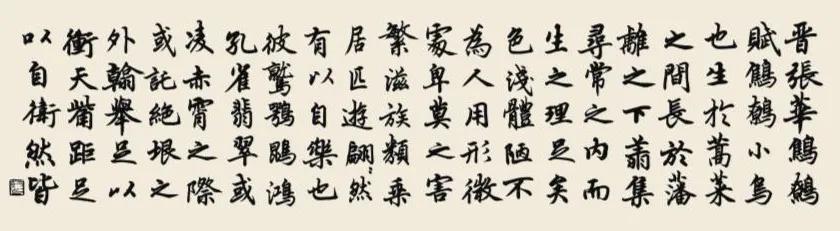 晋張華鷦鷯
賦鷦鷯小鳥
也生於蒿萊
之間長於藩
離之下集
尋常之内而
生之理足矣
色淺體陋不
為人用形微
處卑莫之害
繁滋族類乗
居匹遊翩〻然
有以自樂也
彼鷲鶚鵾鴻
孔雀翡翠或
凌赤霄之際
或託絕垠之
外翰舉足以
衝天觜距足
以自衛然皆